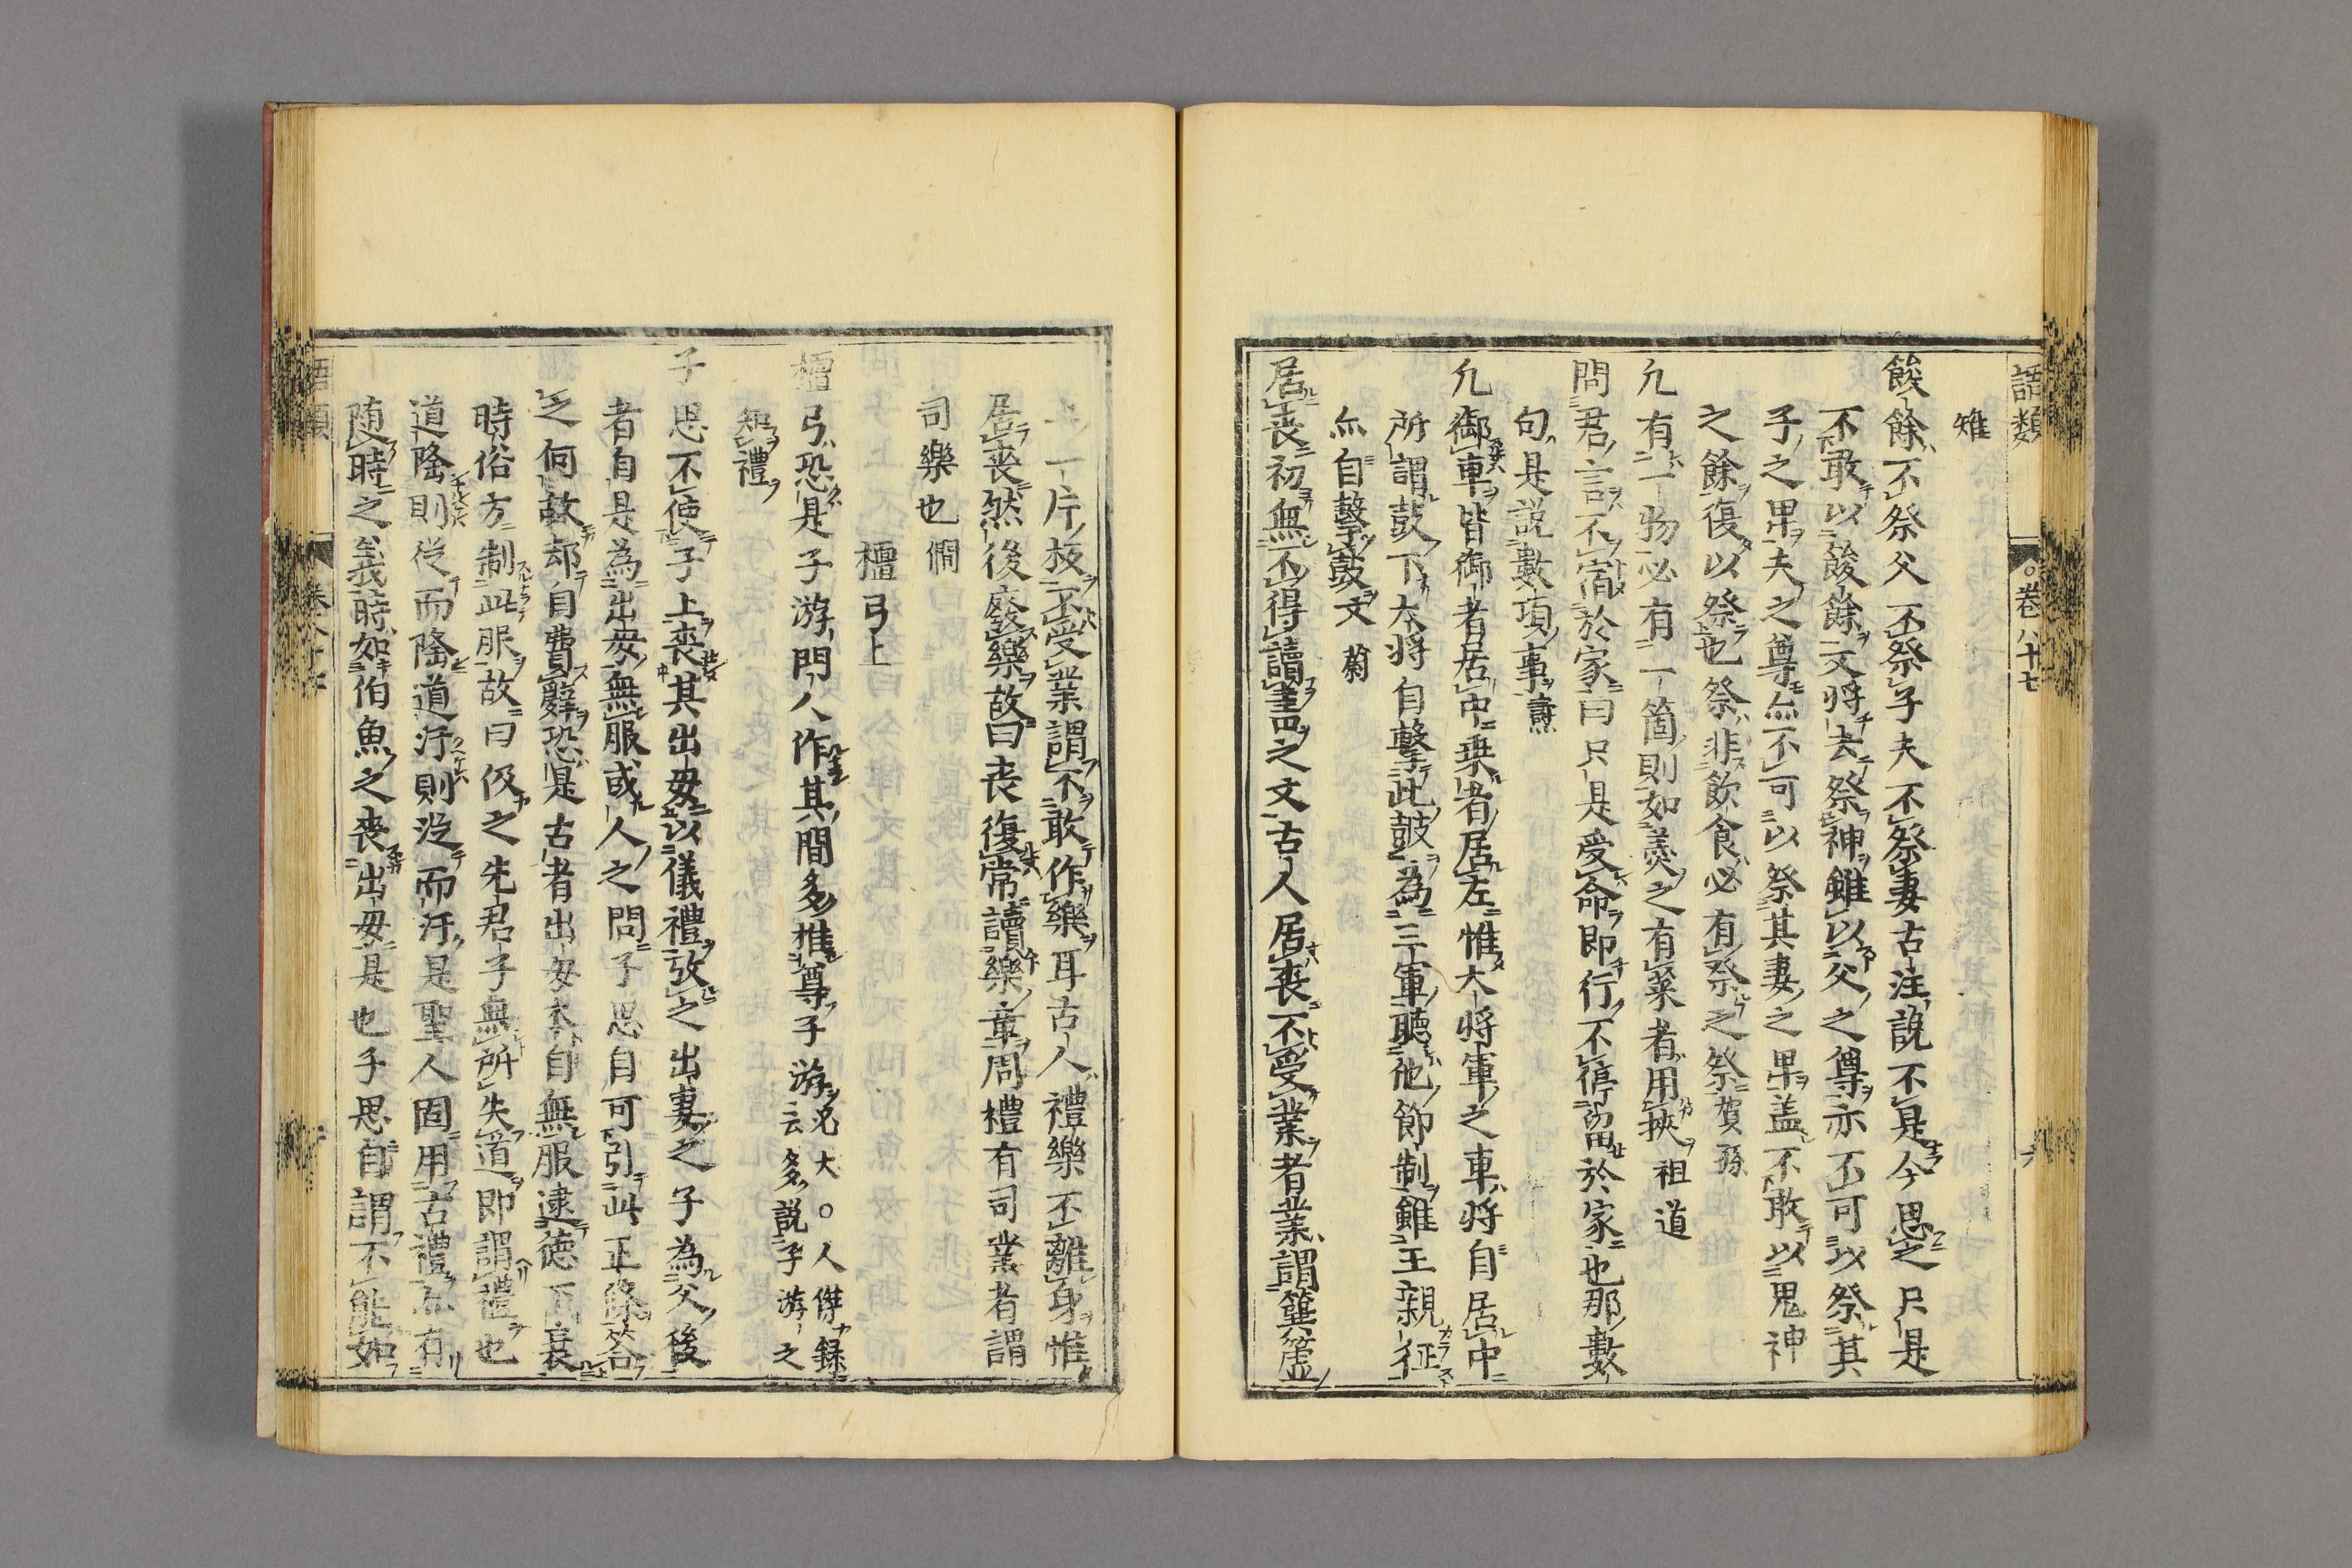 語類
○卷八十七
六
雉
餕餘不祭父不祭子夫不祭妻古注說不是今思之只是
不敢以餕餘又將去祭神雖以父之尊亦不可以祭其
子之卑夫之尊亦不可以祭其妻之卑盖不敢以鬼神
之餘復以祭也祭非飲食必有祭之祭賀孫
凢有一物必有一箇則如羹之有菜者用挾祖道
問君言不宿於家曰只是受命即行不停畱於家也那數
句是説數項事燾
凢御車皆御者居中乗者居左惟大將軍之車將自居中
所謂鼓下大將自擊此鼓為三軍聽他節制雖王親征
亦自擊鼓文蔚
居丧初無不得讀書之文古人居丧不受業者業謂簨簴
上一片板不受業謂不敢作樂耳古人禮樂不離身惟
居丧然後廢樂故曰丧復常讀樂章周禮有司業者謂
司樂也僴
檀弓上
檀弓恐是子游門人作其間多推尊子游必大○人傑録云多説子游之
知禮
子思不使子上丧其出母以儀禮攷之出妻之子為父後
者自是為出母無服或人之問子思自可引此正條答
之何故却自費辭恐是古者出母本自無服逮德下衰
時俗方制此服故曰伋之先君子無所失道即謂禮也
道隆則從而隆道汙則從而汙是聖人固用古禮亦有
随時之義時如伯魚之丧出母是也子思自謂不能如
語類
卷八十七